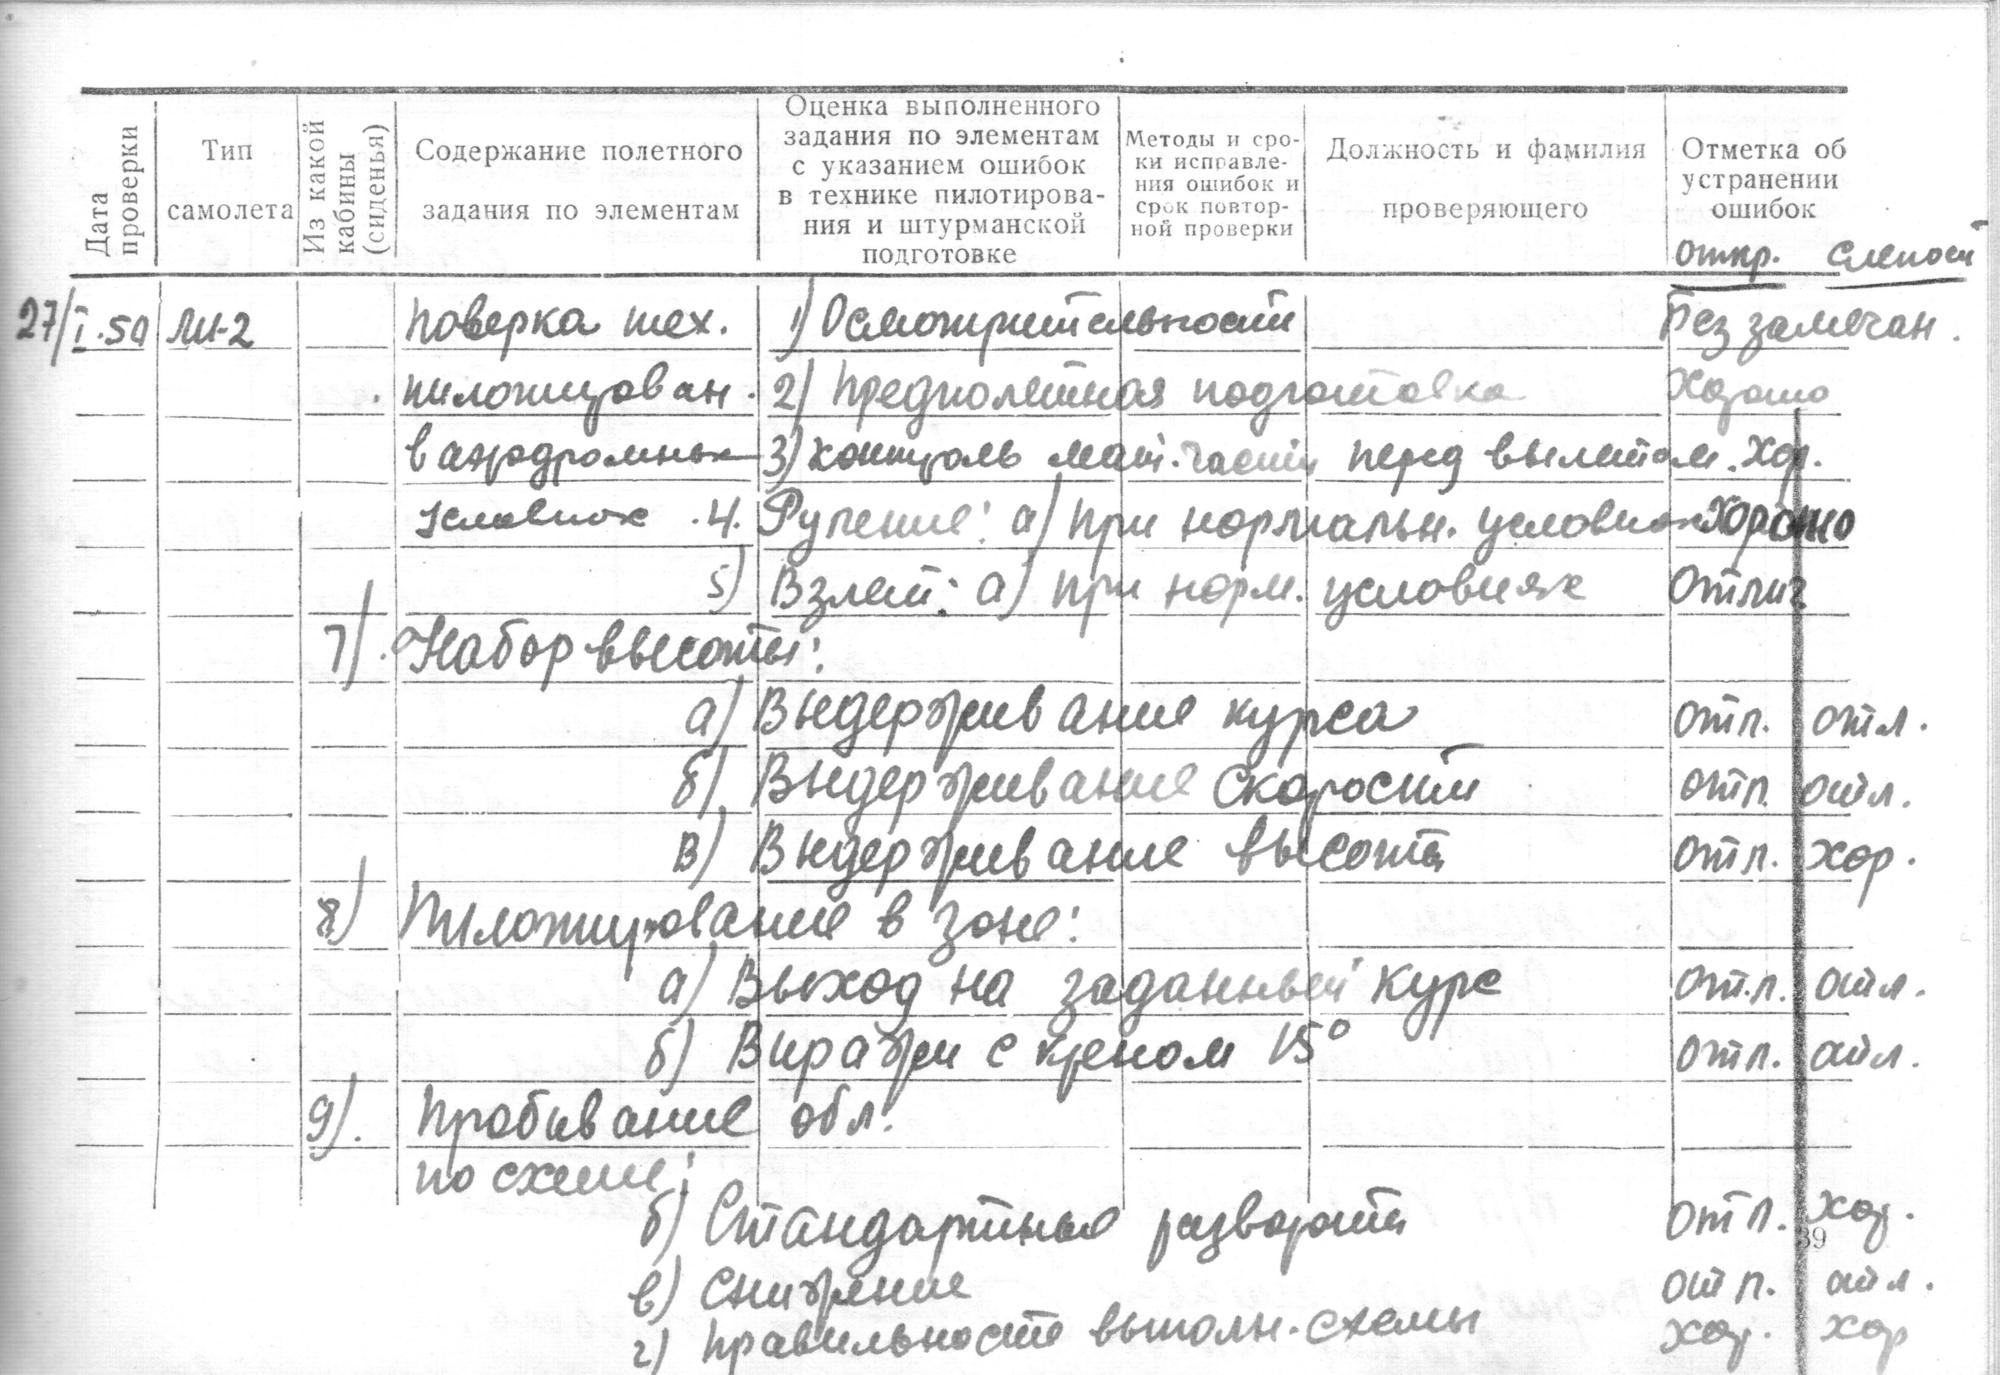 Дата проверки
Тип самолета
Из какой кабины (сиденья)
Содержание полетного задания по элементам
Оценка выполненного задания по элементам с указанием ошибок в технике пилотирования и штурманской подготовке
Методы и сроки исправления ошибок и срок повторной проверки
Должность и фамилия проверяющего
Отметка об устранении ошибок
откр. слепой
27/I.50 Ли-2 Поверка тех. 1) Осмотрительность Без замечан.
пилотирован. 2) Предполетная подготовка Хорошо
в аэродромных 3) Контроль мат. части перед вылетом. Хор.
условиях . 4. Руление: а) При нормальн. условиях Хорошо
5) Взлет: а) При норм. условиях Отлич
7). Набор высоты:
а) Выдерживание курса отл. отл.
б) Выдерживание скорости отл. отл.
в) Выдерживание высоты отл. хор.
8) Пилотирование в зоне:
а) Выход на заданный курс отл. отл.
б) Виражи с креном 15° отл. отл.
9). Пробивание обл.
по схеме:
б) Стандартные развороты отл. хор.
39
в) Снижение отл. отл.
г) Правильность выполн. схемы хор. хор